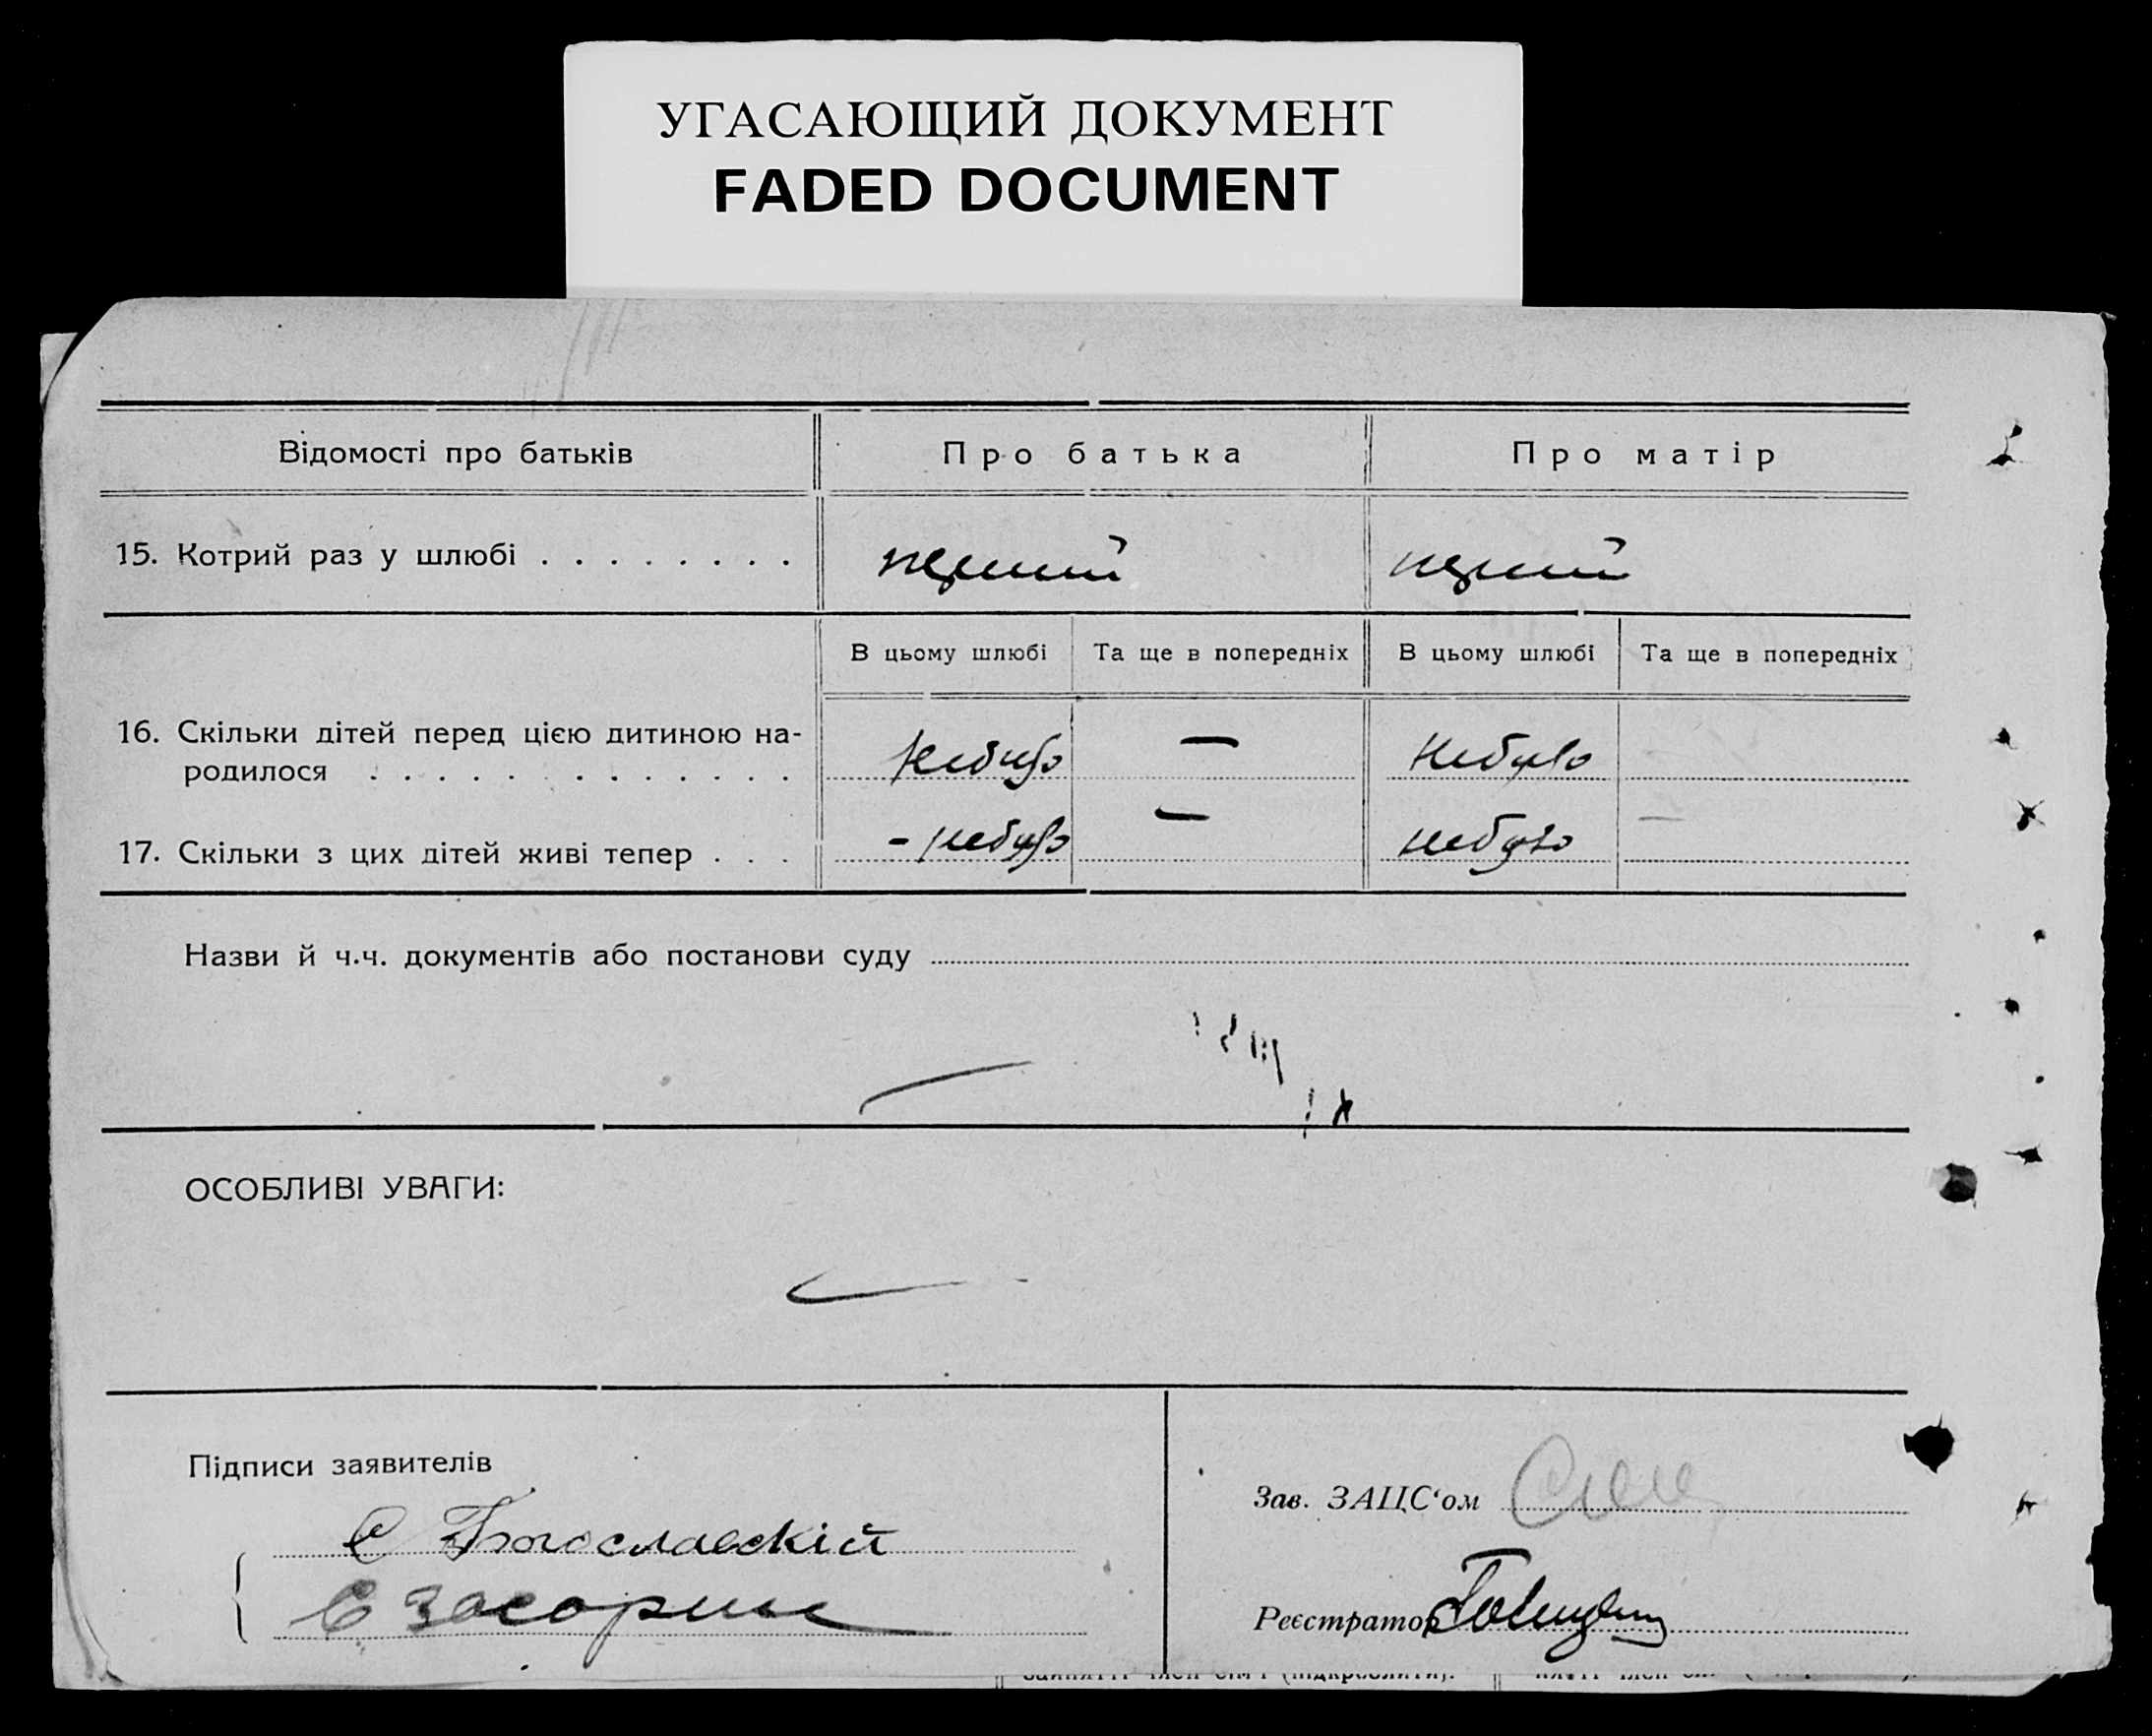 УГАСАЮЩИЙ ДОКУМЕНТ
FADED DOCUMENT
Відомості про батьків Про батька Про матір
15. Котрий раз у шлюбі . . . . . . . . перший перший
В цьому шлюбі Та ще в попередніх В цьому шлюбі Та ще в попередніх
16. Скільки дітей перед цією дитиною на-
родилося . . . . . . . . . . . . . Небуло — Небуло —
17. Скільки з цих дітей живі тепер . . . - небуло — небуло —
Назви й ч.ч. документів або постанови суду
ОСОБЛИВІ УВАГИ:
Підписи заявителів
Зав. ЗАЦС‘ом
С Богославскій
Реєстратор